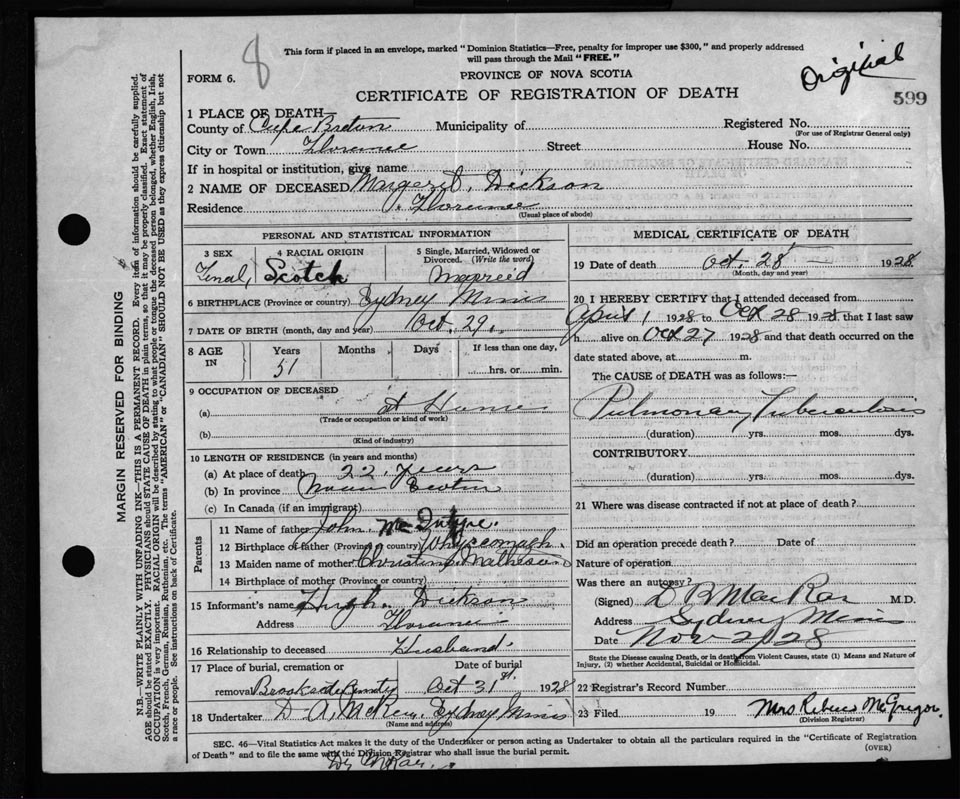 8
This form if placed in an envelope, marked "Dominion Statistics—Free, penalty for improper use $300," and properly addressed
will pass through the Mail "FREE."
Original
FORM 6.
PROVINCE OF NOVA SCOTIA
CERTIFICATE OF REGISTRATION OF DEATH
599
MARGIN RESERVED FOR BINDING
N.B.—WRITE PLAINLY WITH UNFADING INK—THIS IS A PERMANENT RECORD. Every item of information should be carefully supplied.
AGE should be stated EXACTLY. PHYSICIANS should STATE CAUSE OF DEATH in plain terms, so that it may be properly classified. Exact statement of
OCCUPATION is very important. RACIAL ORIGIN will be described by stating to what people or tongue the deceased person belonged, whether English, Irish,
Scotch, French, German, Russian, Ruthenian, etc. The terms "AMERICAN" or "CANADIAN" SHOULD NOT BE USED as they express citizenship but not
a race or people. See instructions on back of Certificate.
1 PLACE OF DEATH
County of Cape Breton Municipality of Registered No.
(For use of Registrar General only)
City or Town Florence Street House No.
If in hospital or institution, give name
2 NAME OF DECEASED Margeret. Dickson
Residence Florence
(Usual place of abode)
PERSONAL AND STATISTICAL INFORMATION
3 SEX 4 RACIAL ORIGIN 5 Single, Married, Widowed or
Divorced. (Write the word)
Femal, Scotch Marreid
6 BIRTHPLACE (Province or country) Sydney Mines
7 DATE OF BIRTH (month, day and year) Oct. 29.
8 AGE IN Years Months Days If less than one day,
51 hrs. or min.
9 OCCUPATION OF DECEASED
(a) at Home
(Trade or occupation or kind of work)
(b)
(Kind of industry)
10 LENGTH OF RESIDENCE (in years and months)
(a) At place of death 22. years
(b) In province Nova Scotia
(c) In Canada (if an immigrant)
Parents
11 Name of father John. McIntyre.
12 Birthplace of father (Province or country) Whycocomagh.
13 Maiden name of mother Matheson
14 Birthplace of mother (Province or country)
15 Informant's name Hugh. Dickson
Address Florence
16 Relationship to deceased Husband.
17 Place of burial, cremation or Date of burial
removal Brookside Oct 31st. 1928
18 Undertaker D. A. Sydney Mines
(Name and address)
MEDICAL CERTIFICATE OF DEATH
19 Date of death Oct. 28 1928
(Month, day and year)
20 I HEREBY CERTIFY that I attended deceased from
April 1 1928 to Oct 28 1928 that I last saw
h alive on Oct 27 1928 and that death occurred on the
date stated above, at m.
The CAUSE of DEATH was as follows:—
Pulmonary Tuberculosis
(duration) yrs. mos. dys.
CONTRIBUTORY
(duration) yrs. mos. dys.
21 Where was disease contracted if not at place of death?
Did an operation precede death? Date of
Nature of operation
Was there an autopsy?
(Signed) D B MacRae M.D.
Address Sydney Mines
Date Nov 2/28
State the Disease causing Death, or in death from Violent Causes, state (1) Means and Nature of
Injury, (2) whether Accidental, Suicidal or Homicidal.
22 Registrar's Record Number
23 Filed 19 Mrs McGregor
(Division Registrar)
SEC. 46—Vital Statistics Act makes it the duty of the Undertaker or person acting as Undertaker to obtain all the particulars required in the "Certificate of Registration
of Death" and to file the same with the Division Registrar who shall issue the burial permit. (OVER)